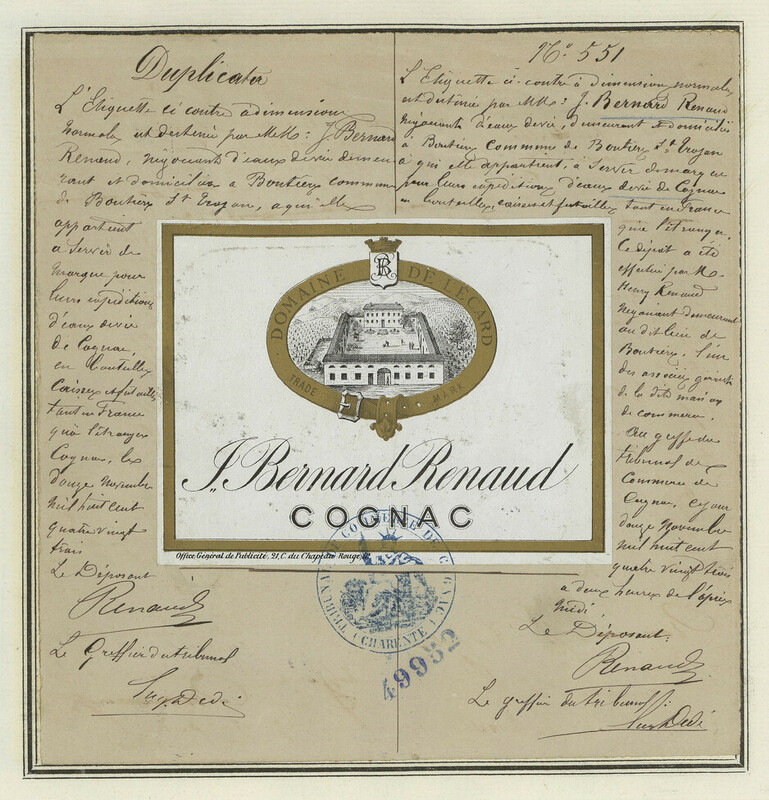 Duplicata
L'Etiquette ci contre a dimensions
normales est destinée par MM: J. Bernard
Renaud, négociants d'eaux de vie demeu
rant et domiciliés à Boutiers commune
de Boutiers St Trojan, à qui elle
appartient
a servir de
marque pour
leurs expéditions
d'eaux de vie
de Cognac,
en bouteilles
caisses et futailles
tant en France
qu'à l'étranger
Cognac, les
douze novembre
mil huit cent
quatre vingt
trois
Le Déposant
Renaud
Le Greffier du tribunal
No. 551
L'Etiquette ci-contre à dimension normales
est destinée par MM: J. Bernard Renaud
Négociants d'eaux de vie, demeurant et domiciliés
à Boutiers Commune de Boutiers St Trojan
à qui elle appartient, à servir de marque
pour leurs expéditions d'eaux de vie de Cognac
en bouteilles, caisses et futailles tant en France
que l'étranger.
Ce dépôt a été
effectué par M.
Henry Renaud
Négociant demeurant
au dit lieu de
Boutiers, l'un
des associés gérants
de la dite maison
de commerce.
Au greffe du
tribunal de
Commerce de
Cognac, ce jour
douze Novembre
mil huit cent
quatre vingt trois
a deux heures de l'après
midi
Le Déposant:
Renaud
Le greffier du tribunal:
DOMAINE DE LÉCARD
BR
TRADE MARK
J. Bernard Renaud
COGNAC
Office Général de Publicité, 21, C. du Chapeau Rouge,
COMMERCE DE COGNAC
(CHARENTE)
49932